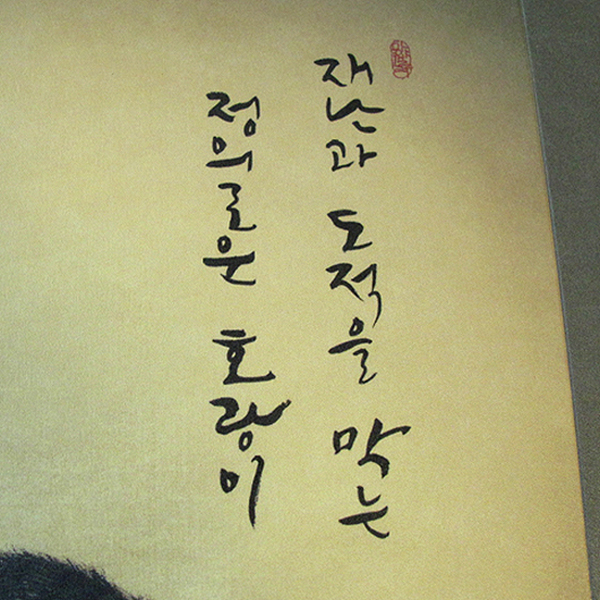 재난과 도적을 막는
정의로운 호랑이